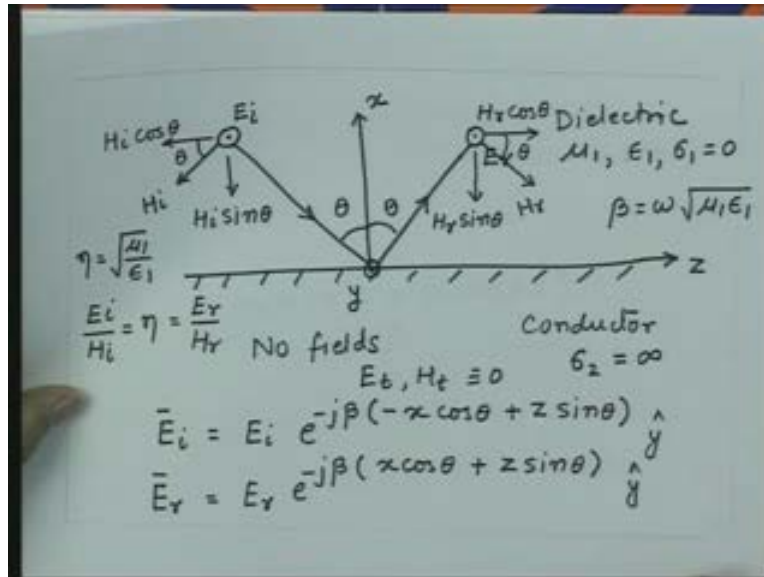 x
Ei
Hi cosθ
θ
Hi
Hi sinθ
θ θ
Hr cosθ
θ
Hr sinθ
Hr
Dielectric
μ1, ϵ1, σ1 = 0
β = ω√μ1ϵ1
η = √μ1/ϵ1
z
y
Ei/Hi = η = Er/Hr
No fields
Et, Ht ≡ 0
Conductor
σ2 = ∞
Ēi = Ei e^-jβ(-x cosθ + z sinθ) ŷ
Ēr = Er e^-jβ(x cosθ + z sinθ) ŷ